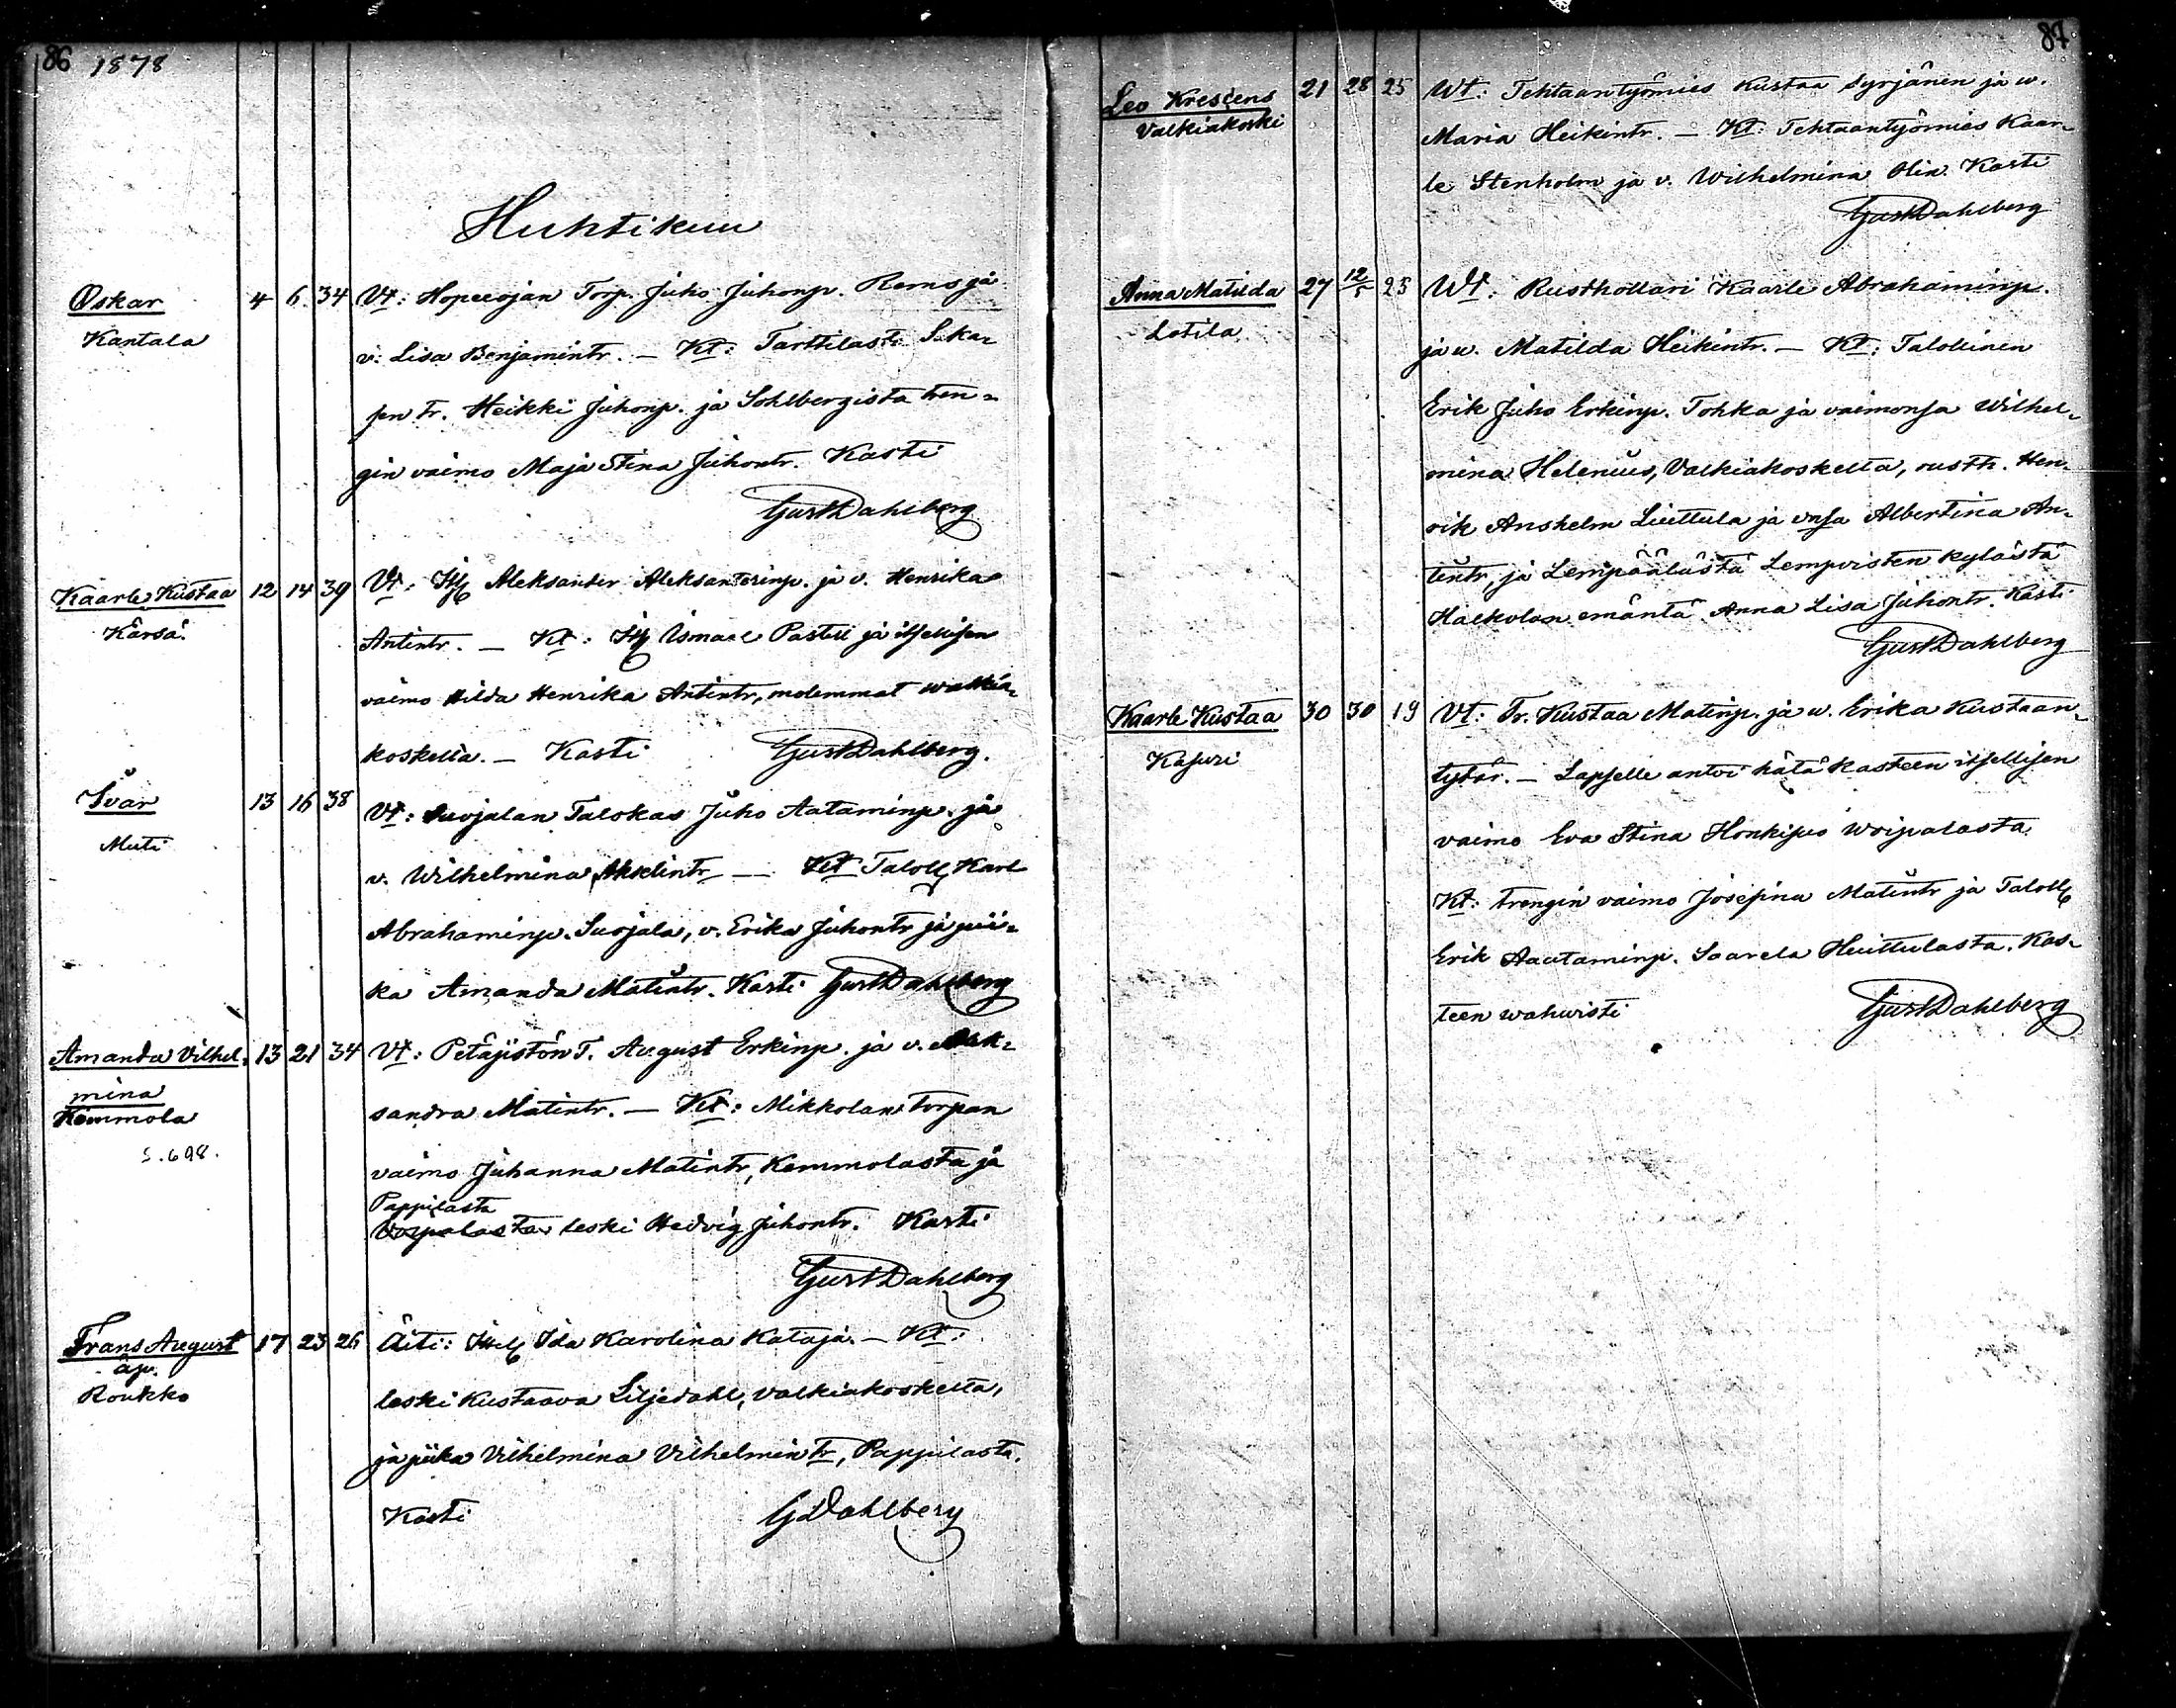 86 1878
Huhtikuu
Oskar 4 6 34 Vt: Hopeeojan Torp. Juho Juhonp. Rems ja
Kantala v. Lisa Benjamintr. – Kt: Tarttilasta Ska-
pn tr. Heikki Juhonp. ja Sohlbergista tren-
gin vaimo Maja Stina Juhontr. Kasti
Gust Dahlberg
Kaarle Kustaa 12 14 39 Vt: Itz Aleksander Aleksanterinp. ja v. Henrika
Kärsä. Antintr. – Kt: Itz Ismael Pastell ja itsellisen
vaimo Hilda Henrika Antintr, molemmat walkia-
koskella. – Kasti Gust Dahlberg.
Ivar 13 16 38 Vt: Suojalan Talokas Juho Aataminp. ja
Muti v. Wilhelmina Akselintr – Kt Taloll Karl
Abrahaminp. Suojala, v. Erika Juhontr ja pii-
ka Amanda Matintr. Kasti Gust Dahlberg
Amanda Vilhel- 13 21 34 Vt: Petäjistön T. August Erkinp. ja v. Alek-
mina
Kemmola sandra Matintr. – Kt: Mikkolan torpan
S. 698. vaimo Juhanna Matintr, Kemmolasta ja
Pappilasta
Voipalasta leski Hedvig Juhontr. Kasti
Gust Dahlberg
Frans August 17 23 26 Äiti: Itsell Ida Karolina Kataja. – Kt:
äp.
Roukko leski Kustaava Liljedahl, Valkiakoskelta,
ja piika Vilhelmina Vilhelmintr, Pappilasta.
Kasti G Dahlberg
87
Leo Krescens 21 28 25 Wt: Tehtaantyömies Kustaa Syrjänen ja w.
Valkiakoski Maria Heikintr. – Kt: Tehtaantyömies Kaar-
le Stenholm ja v. Wilhelmina Olin. Kasti
Gust Dahlberg
Anna Matilda 27 12/5 23 Wt: Rusthollari Kaarle Abrahaminp.
Lotila ja w. Matilda Heikintr. – Kt: Talollinen
Erik Juho Erkinp. Tohka ja vaimonsa Wilhel-
mina Helenius, Valkiakoskelta, rusth. Hen-
rik Anshelm Liuttula ja vnsa Albertina An-
tintr, ja Lempäälästä Lempoisten kylästä
Halkolan emäntä Anna Lisa Juhontr. Kasti
Gust Dahlberg
Kaarle Kustaa 30 30 19 Vt: Tr. Kustaa Matinp. ja w. Erika Kustaan-
Kasuri tytär. – Lapselle antoi hätä kasteen itsellisen
vaimo Eva Stina Honkipuo Woipalasta
Kt: trengin vaimo Josefina Matintr ja Taloll
Erik Aaataminp. Saarela Huittulasta. Kas-
teen wahwisti Gust Dahlberg